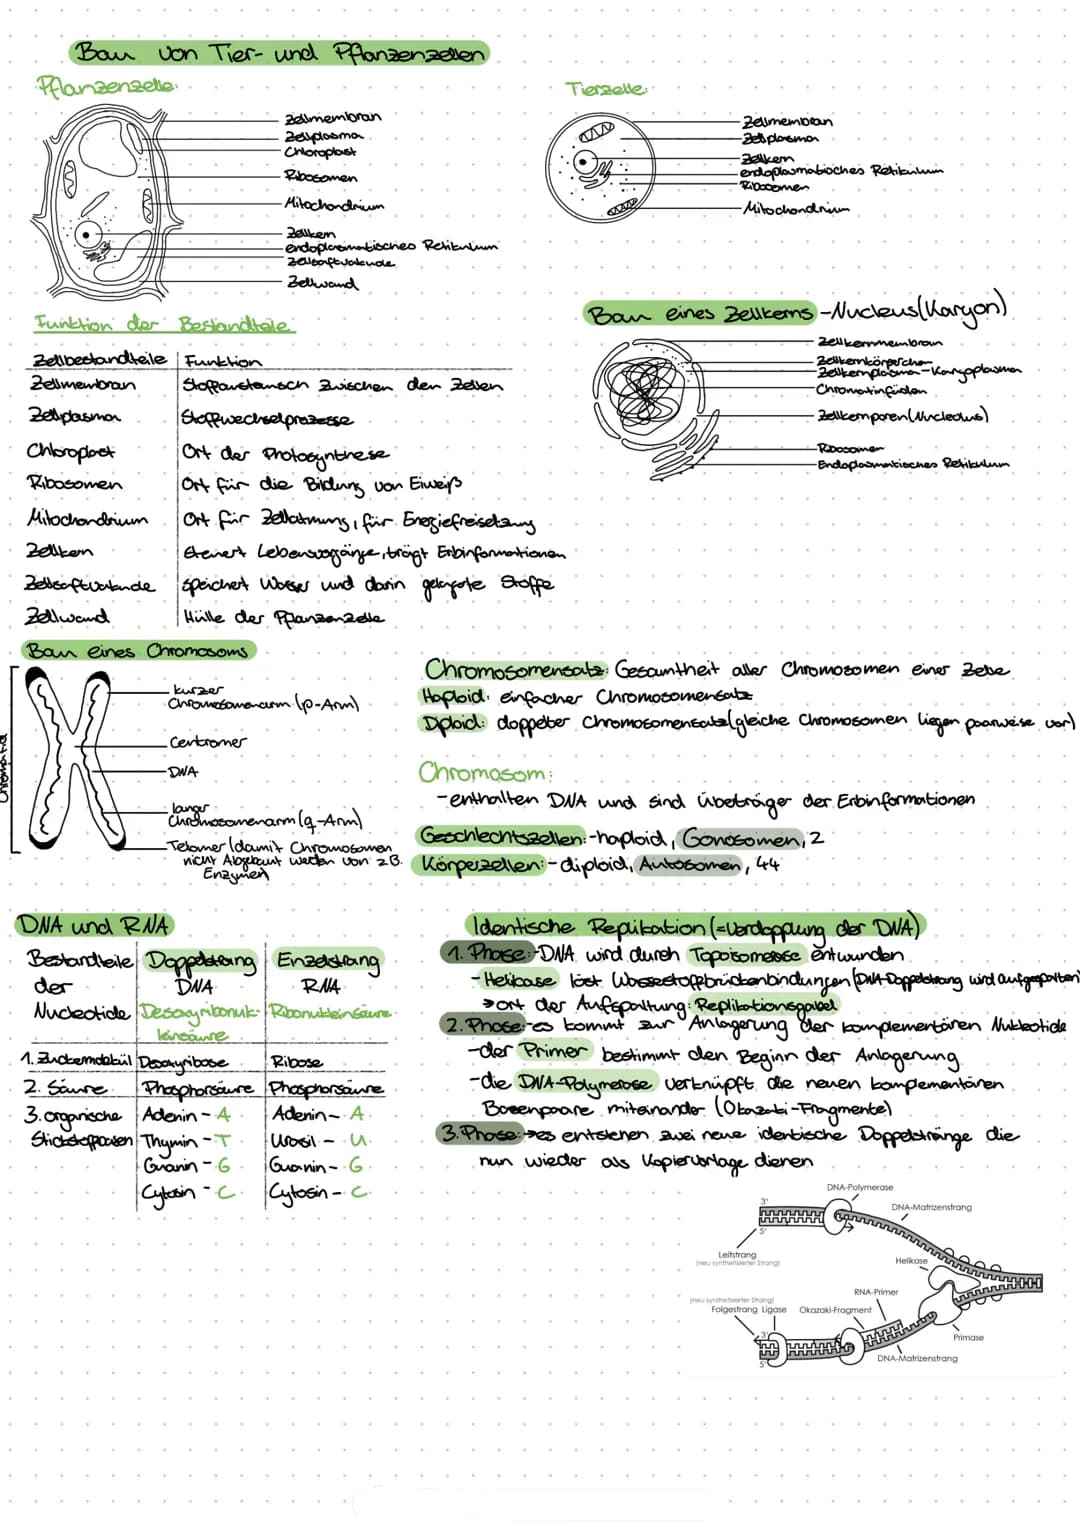 Bau von Tier- und Pflanzenzellen
Pflanzenzelle:
Zellmembran
Zellplasma
Chloroplast
Ribosomen
Mitochondrium
Zellkern
endoplasmatisches Retikulum
Zellsaftvakuole
Zellwand
Tierzelle:
Zellmembran
Zellplasma
Zellkern
endoplasmatisches Retikulum
Ribosomen
Mitochondrium
Funktion der Bestandteile
Zellbestandteile Funktion
Zellmembran Stoffaustausch zwischen den Zellen
Zellplasma Stoffwechselprozesse
Chloroplast Ort der Photosynthese
Ribosomen Ort für die Bildung von Eiweiß
Mitochondrium Ort für Zellatmung, für Energiefreisetzung
Zellkern Steuert Lebensvorgänge, trägt Erbinformationen
Zellsaftvakuole speichert Wasser und darin gelöste Stoffe
Zellwand Hülle der Pflanzenzelle
Bau eines Zellkerns - Nucleus (Karyon)
Zellkernmembran
Zellkernkörperchen
Zellkernplasma - Karyoplasma
Chromatinfäden
Zellkernporen (Nucleolus)
Ribosomen
Endoplasmatisches Retikulum
Bau eines Chromosoms
Chromatid
kurzer
Chromosomenarm (p-Arm)
Centromer
DNA
langer
Chromosomenarm (q-Arm)
Telomer (damit Chromosomen
nicht Abgebaut werden von z.B.
Enzymen)
Chromosomensatz: Gesamtheit aller Chromosomen einer Zelle
Haploid: einfacher Chromosomensatz
Diploid: doppelter Chromosomensatz (gleiche Chromosomen liegen paarweise vor)
Chromosom:
- enthalten DNA und sind Überträger der Erbinformationen
Geschlechtszellen: - haploid, Gonosomen, 2
Körperzellen: - diploid, Autosomen, 44
DNA und RNA
Bestandteile Doppelstrang Einzelstrang
der DNA RNA
Nucleotide Desoxyribonuk- Ribonukleinsäure
leinsäure
1. Zuckermolekül Desoxyribose Ribose
2. Säure Phosphorsäure Phosphorsäure
3. organische Adenin - A Adenin - A
Stickstoffbasen Thymin - T Urasil - U
Guanin - G Guanin - G
Cytosin - C Cytosin - C
Identische Replikation (=Verdopplung der DNA)
1. Phase: - DNA wird durch Topoisomerase entwunden
- Helikase löst Wasserstoffbrückenbindungen (DNA-Doppelstrang wird aufgespalten)
→ Ort der Aufspaltung: Replikationsgabel
2. Phase: - es kommt zur Anlagerung der komplementären Nukleotide
- der Primer bestimmt den Beginn der Anlagerung
- die DNA-Polymerase verknüpft die neuen komplementären
Basenpaare miteinander (Okazaki-Fragmente)
3. Phase: → es entstehen zwei neue identische Doppelstränge die
nun wieder als Kopiervorlage dienen
DNA-Polymerase
DNA-Matrizenstrang
3'
5'
Leitstrang
(neu synthetisierter Strang)
Helikase
RNA-Primer
(neu synthetisierter Strang)
Folgestrang Ligase Okazaki-Fragment
Primase
3'
5'
DNA-Matrizenstrang